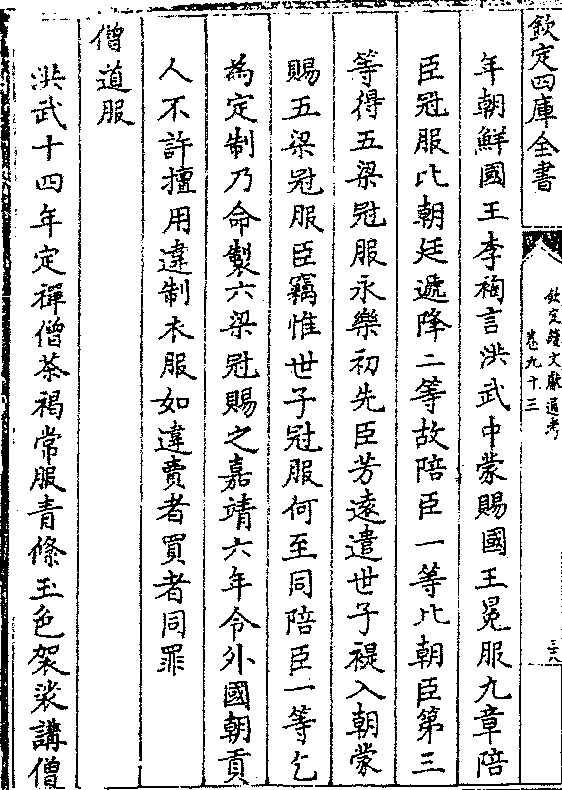 欽定四庫全書
欽定續文獻通考
卷九十三
三八
年朝鮮國王李裪言洪武中蒙賜國王冕服九章陪
臣冠服比朝廷遞降二等故陪臣一等比朝臣第三
等得五梁冠服永樂初先臣芳遠遣世子禔入朝蒙
賜五梁冠服臣竊惟世子冠服何至同陪臣一等乞
為定制乃命製六梁冠賜之嘉靖六年令外國朝貢
人不許擅用違制衣服如違賣者買者同罪
僧道服
洪武十四年定禪僧茶褐常服青條玉色袈裟講僧